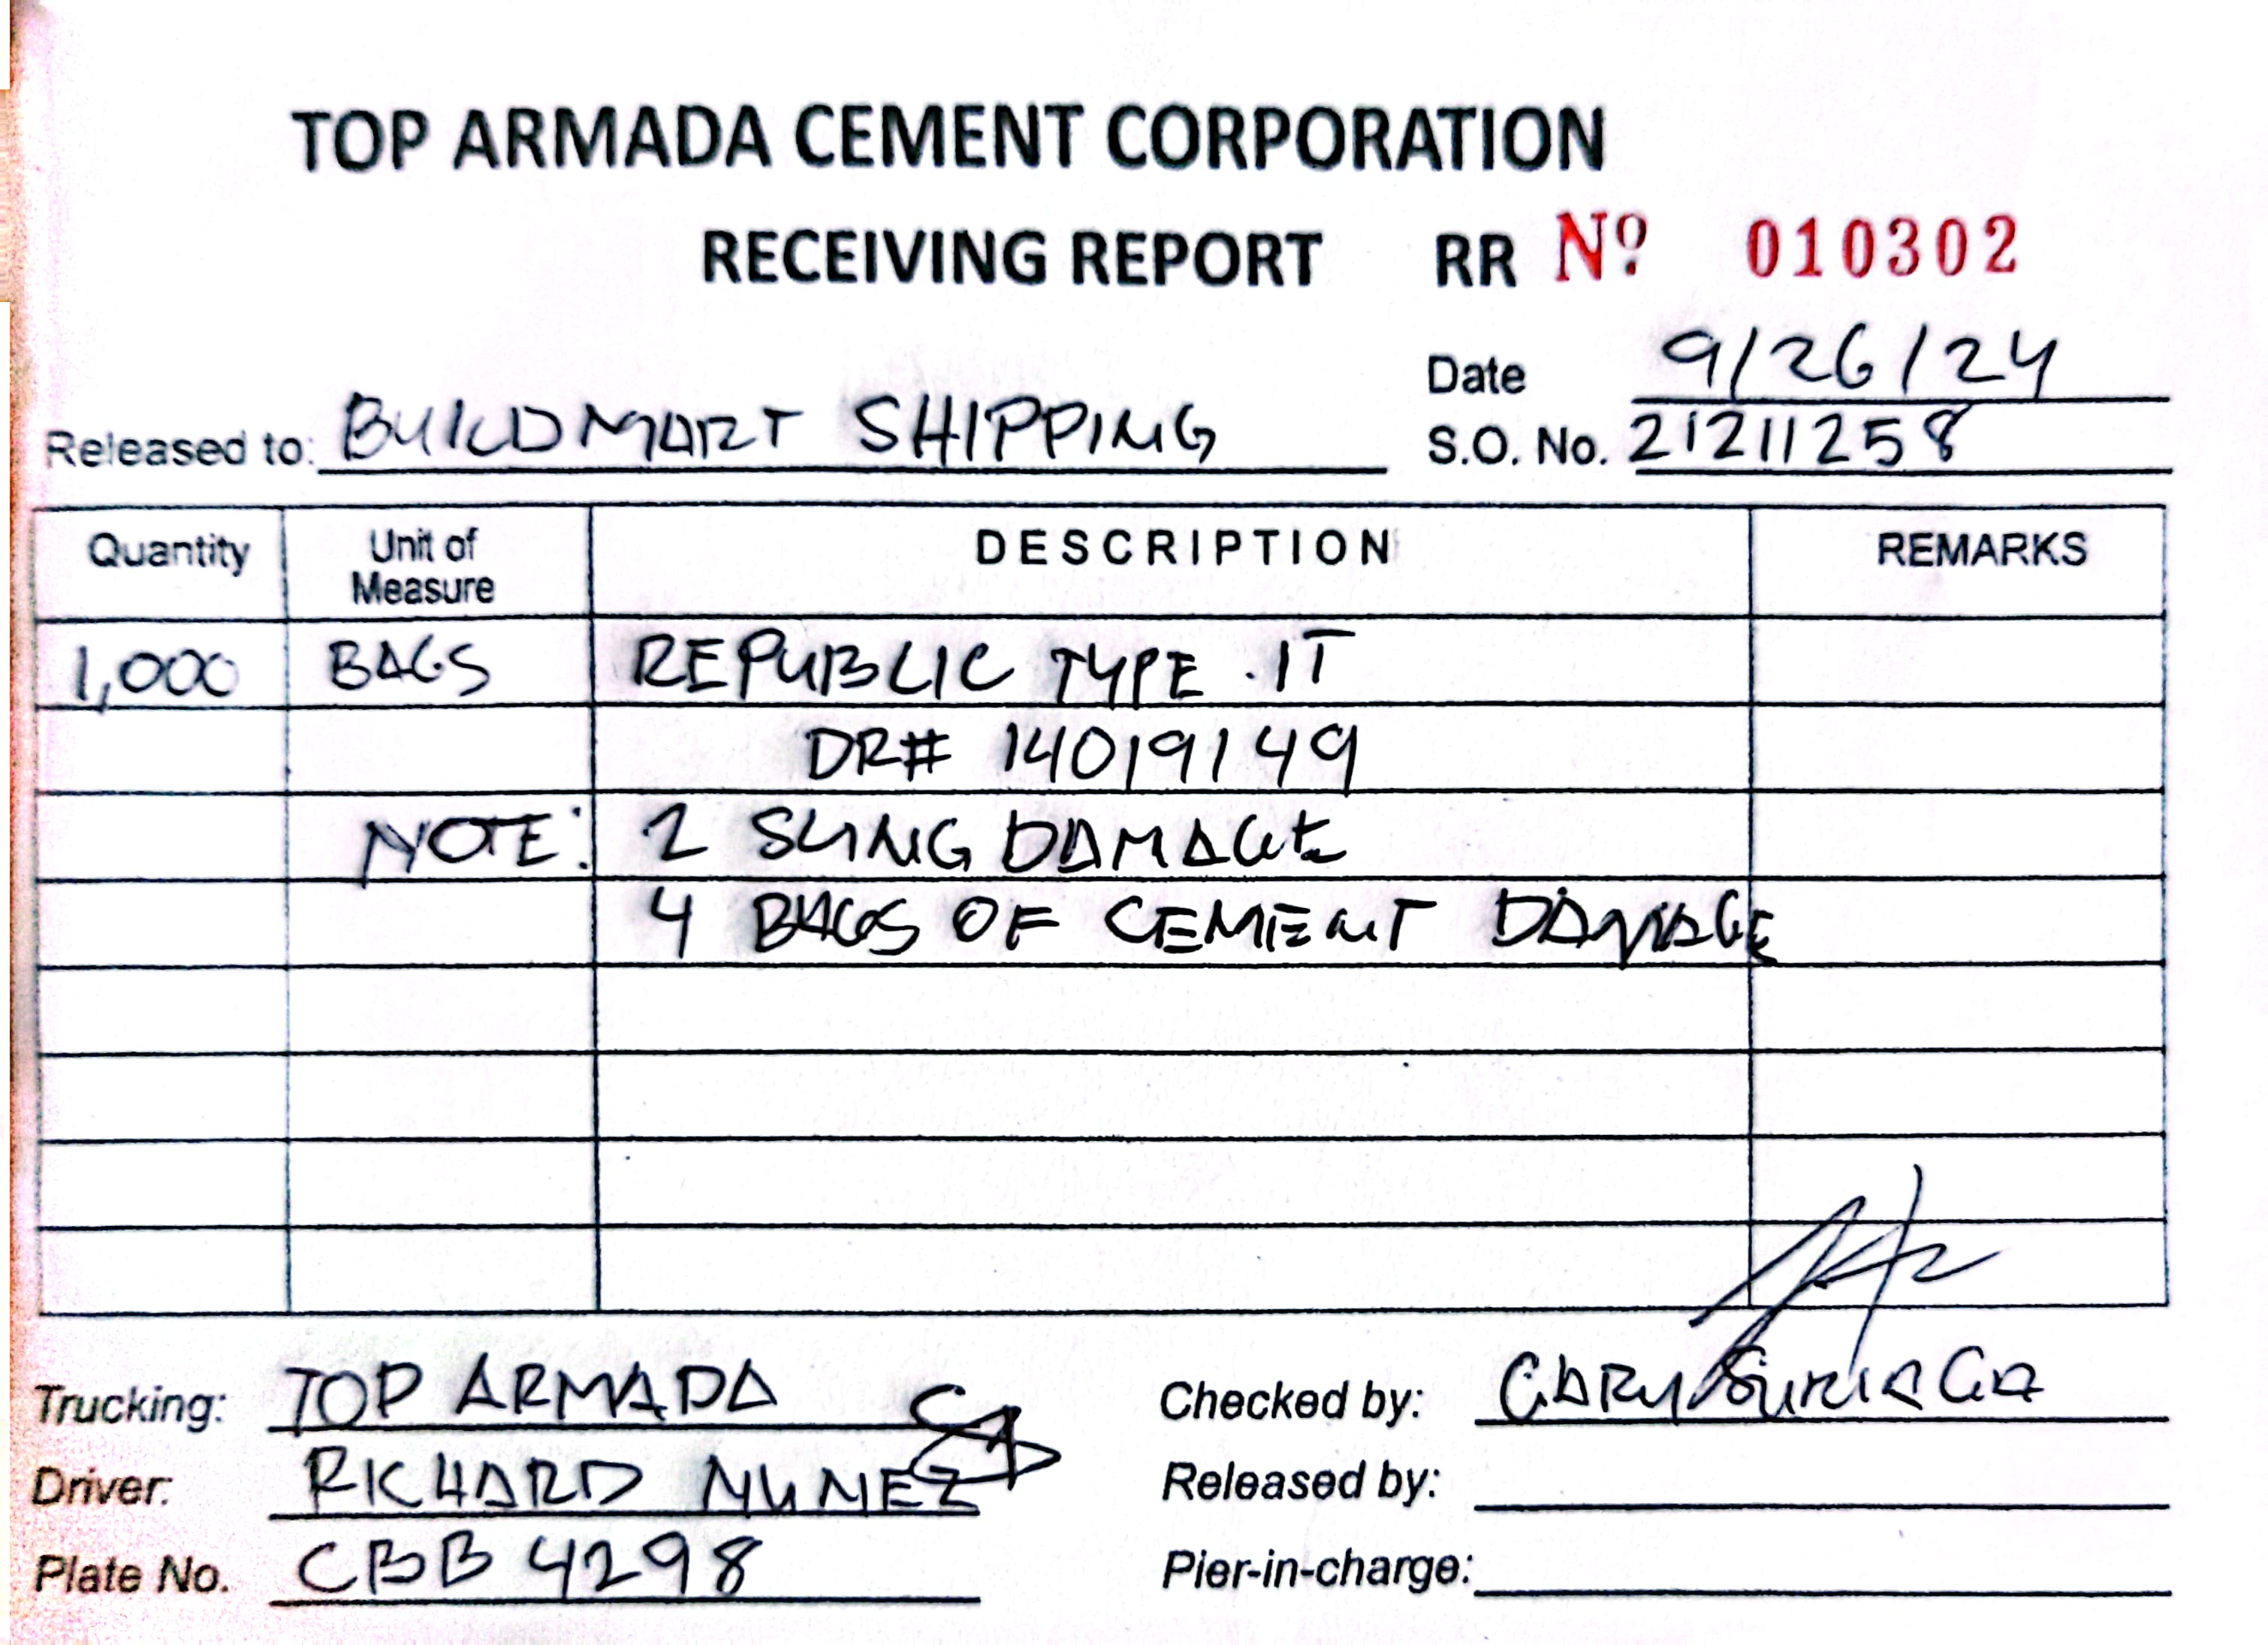 TOP ARMADA CEMENT CORPORATION
RECEIVING REPORT RR Nº 010302
Date 9/26/24
Released to: BUILDMART SHIPPING S.O. No. 21211258
Quantity Unit of Measure DESCRIPTION REMARKS
1,000 BAGS REPUBLIC TYPE 1T
DR# 14019149
NOTE: 2 SLING DAMAGE
4 BAGS OF CEMENT DAMAGE
Trucking: TOP ARMADA Checked by: GARY
Driver: RICHARD NUNEZ Released by:
Plate No. CBB 4298 Pier-in-charge: